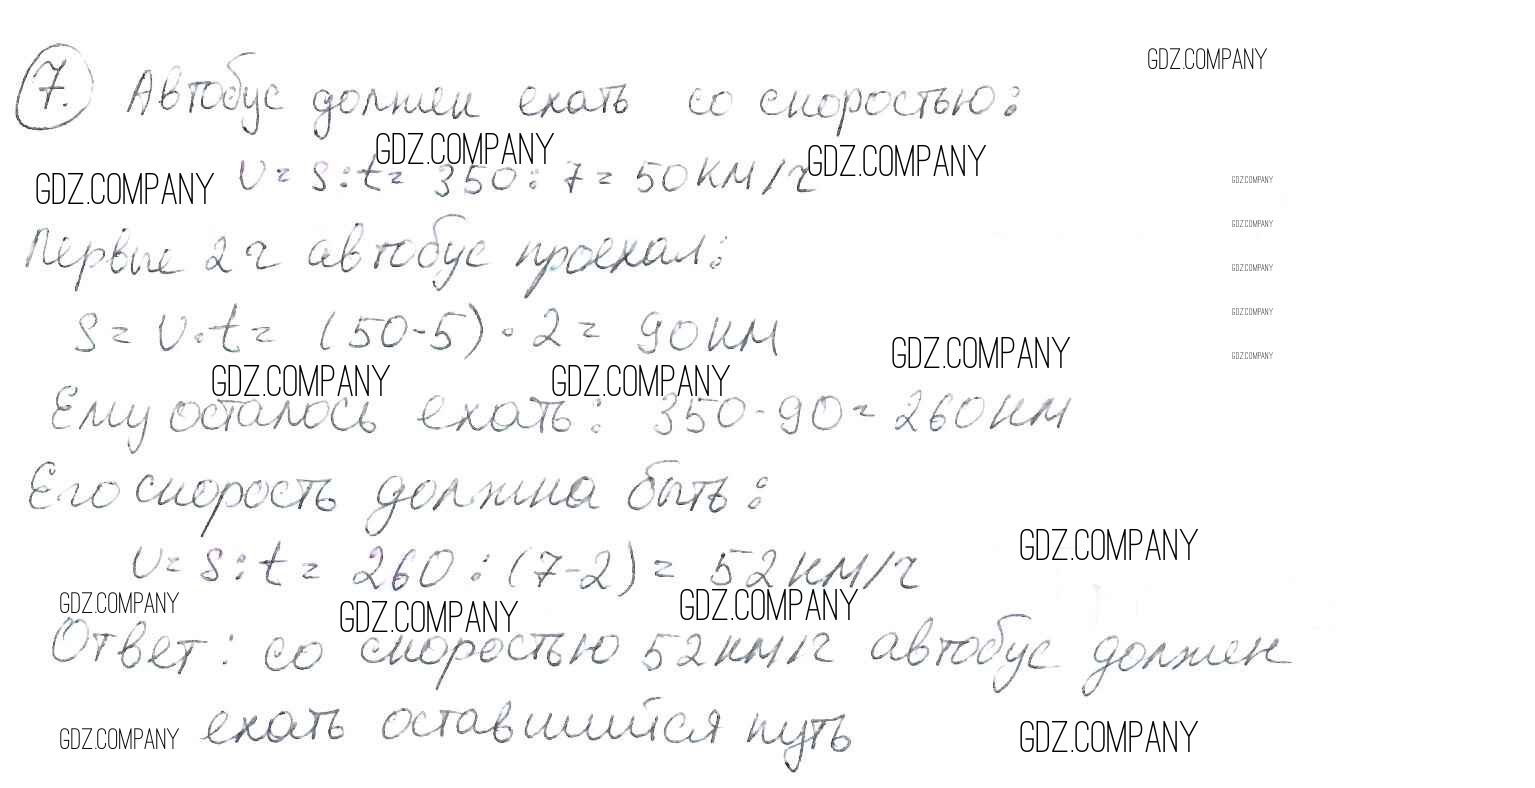 GDZ.COMPANY
7. Автобус должен ехать со скоростью:
GDZ.COMPANY GDZ.COMPANY
GDZ.COMPANY v = s : t = 350 : 7 = 50 км/ч GDZ.COMPANY
GDZ.COMPANY
Первые 2 ч автобус проехал:
GDZ.COMPANY
GDZ.COMPANY
s = v · t = (50 - 5) · 2 = 90 км
GDZ.COMPANY GDZ.COMPANY
GDZ.COMPANY GDZ.COMPANY
Ему осталось ехать: 350 - 90 = 260 км
Его скорость должна быть:
GDZ.COMPANY
v = s : t = 260 : (7 - 2) = 52 км/ч
GDZ.COMPANY GDZ.COMPANY GDZ.COMPANY
Ответ: со скоростью 52 км/ч автобус должен
GDZ.COMPANY ехать оставшийся путь GDZ.COMPANY